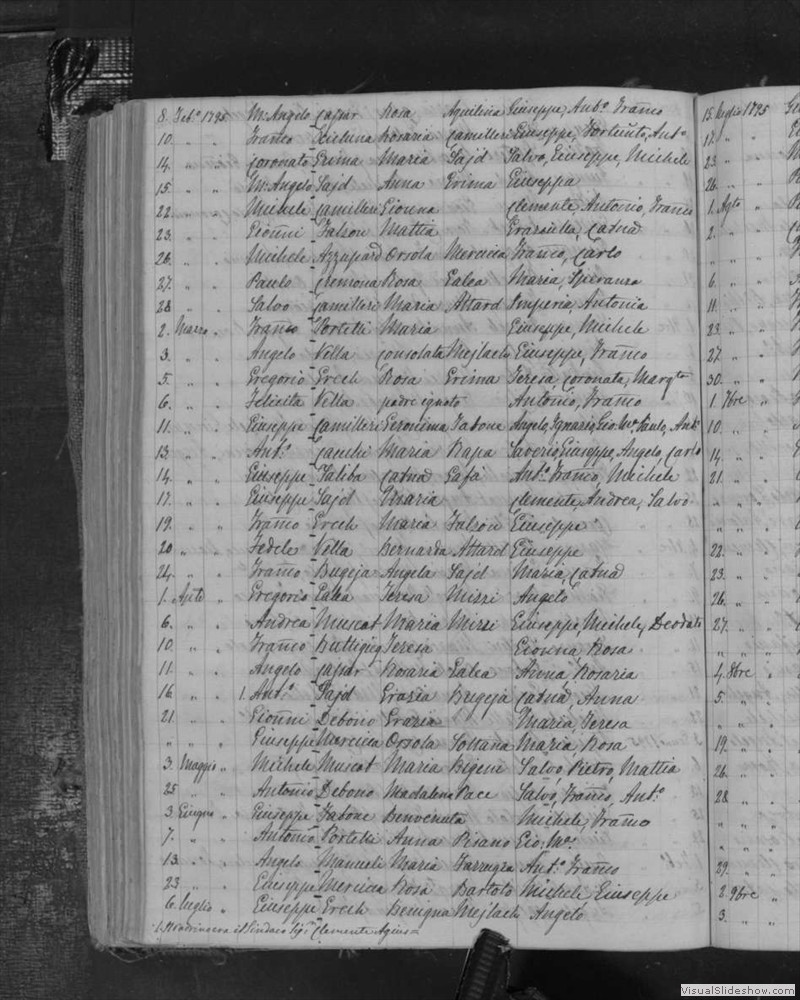 8. Feb.º 1795. M: Angelo Caspar Rosa Aquilina Giuseppe, Ant.º Franco
10. " " Franco Xicluna Rosaria Camilleri Giuseppe, Fortunto, Ant.º
14. " " Coronato Grima Maria Sajd Salvo, Giuseppe, Michele
15. " " M: Angelo Sajd Anna Grima Giuseppa
22. " " Michele Camilleri Gionna Clemente, Antonio, Franco
23. " " Gionni Falzon Mattia Graziulla, Catna
26. " " Michele Azzupard Orsola Mercieca Franco, Carlo
27. " " Paulo Cremona Rosa Galea Maria, Speranza
28 " " Salvo Camilleri Maria Attard Imperia, Antonia
2. Marzo " Franco Portelli Maria Giuseppe, Michele
3. " " Angelo Vella Consolata Mejlach Giuseppe, Franco
5. " " Gregorio Grech Rosa Grima Teresa, Coronata, Margta
6. " " Felicita Vella padre ignoto Antonio, Franco
11. " " Giuseppe Camilleri Geronima Tabone Angelo, Ignazio, Gio M.ª, Paulo, Ant.º
13 " " Ant.º Cacchi Maria Rapa Saverio, Giuseppe, Angelo, Carlo
14 " " Giuseppe Taliba Catna Cafà Ant.º Franco, Michele
17. " " Giuseppe Sajd Maria Clemente, Andrea, Salvo
19. " " Franco Grech Maria Falzon Giuseppe
20 " " Fedele Vella Bernarda Attard Giuseppe
24. " " Franco Bugeja Angela Sajd Maria, Catna
1. Aple " Gregorio Galea Teresa Mizzi Angelo
6. " " Andrea Muscat Maria Mizzi Giuseppe, Michele, Deodato
10. " " Franco Buttigieg Teresa Gionna, Rosa
11. " " Angelo Caspar Rosaria Galea Anna, Rosaria
16 " " 1. Ant.º Sajd Grazia Bugeja Catna, Anna
21. " " Gionni Debono Grazia Maria, Teresa
" " " Giuseppe Mercieca Orsola Soltana Maria, Rosa
3. Maggio " Michele Muscat Maria Bigeni Salvo, Pietro, Mattia
25 " " Antonio Debono Madalena Pace Salvo, Franco, Ant.º
3. Giugno " Giuseppe Tabone Benvenuta Michele, Franco
7. " " Antonio Portelli Anna Pisano Gio: M.ª
13. " " Angelo Manueli Maria Farrugia Ant.º Franco
23 " " Giuseppe Mercieca Rosa Bartolo Michele, Giuseppe
6. luglio " Giuseppe Grech Benigna Mejlach Angelo
Clemente Agius
15. luglio 1795
17. " "
23 " "
26. " "
1. Agto "
2. " "
" " "
6. " "
11. " "
23. " "
27. " "
30. " "
1. 7bre "
10. " "
14. " "
21. " "
" " "
" " "
22. " "
23. " "
26. " "
27. " "
" " "
4. 8bre "
5. " "
" " "
19. " "
26. " "
28 " "
" " "
" " "
29. " "
2. 9bre "
3. " "
VisualSlideshow.com